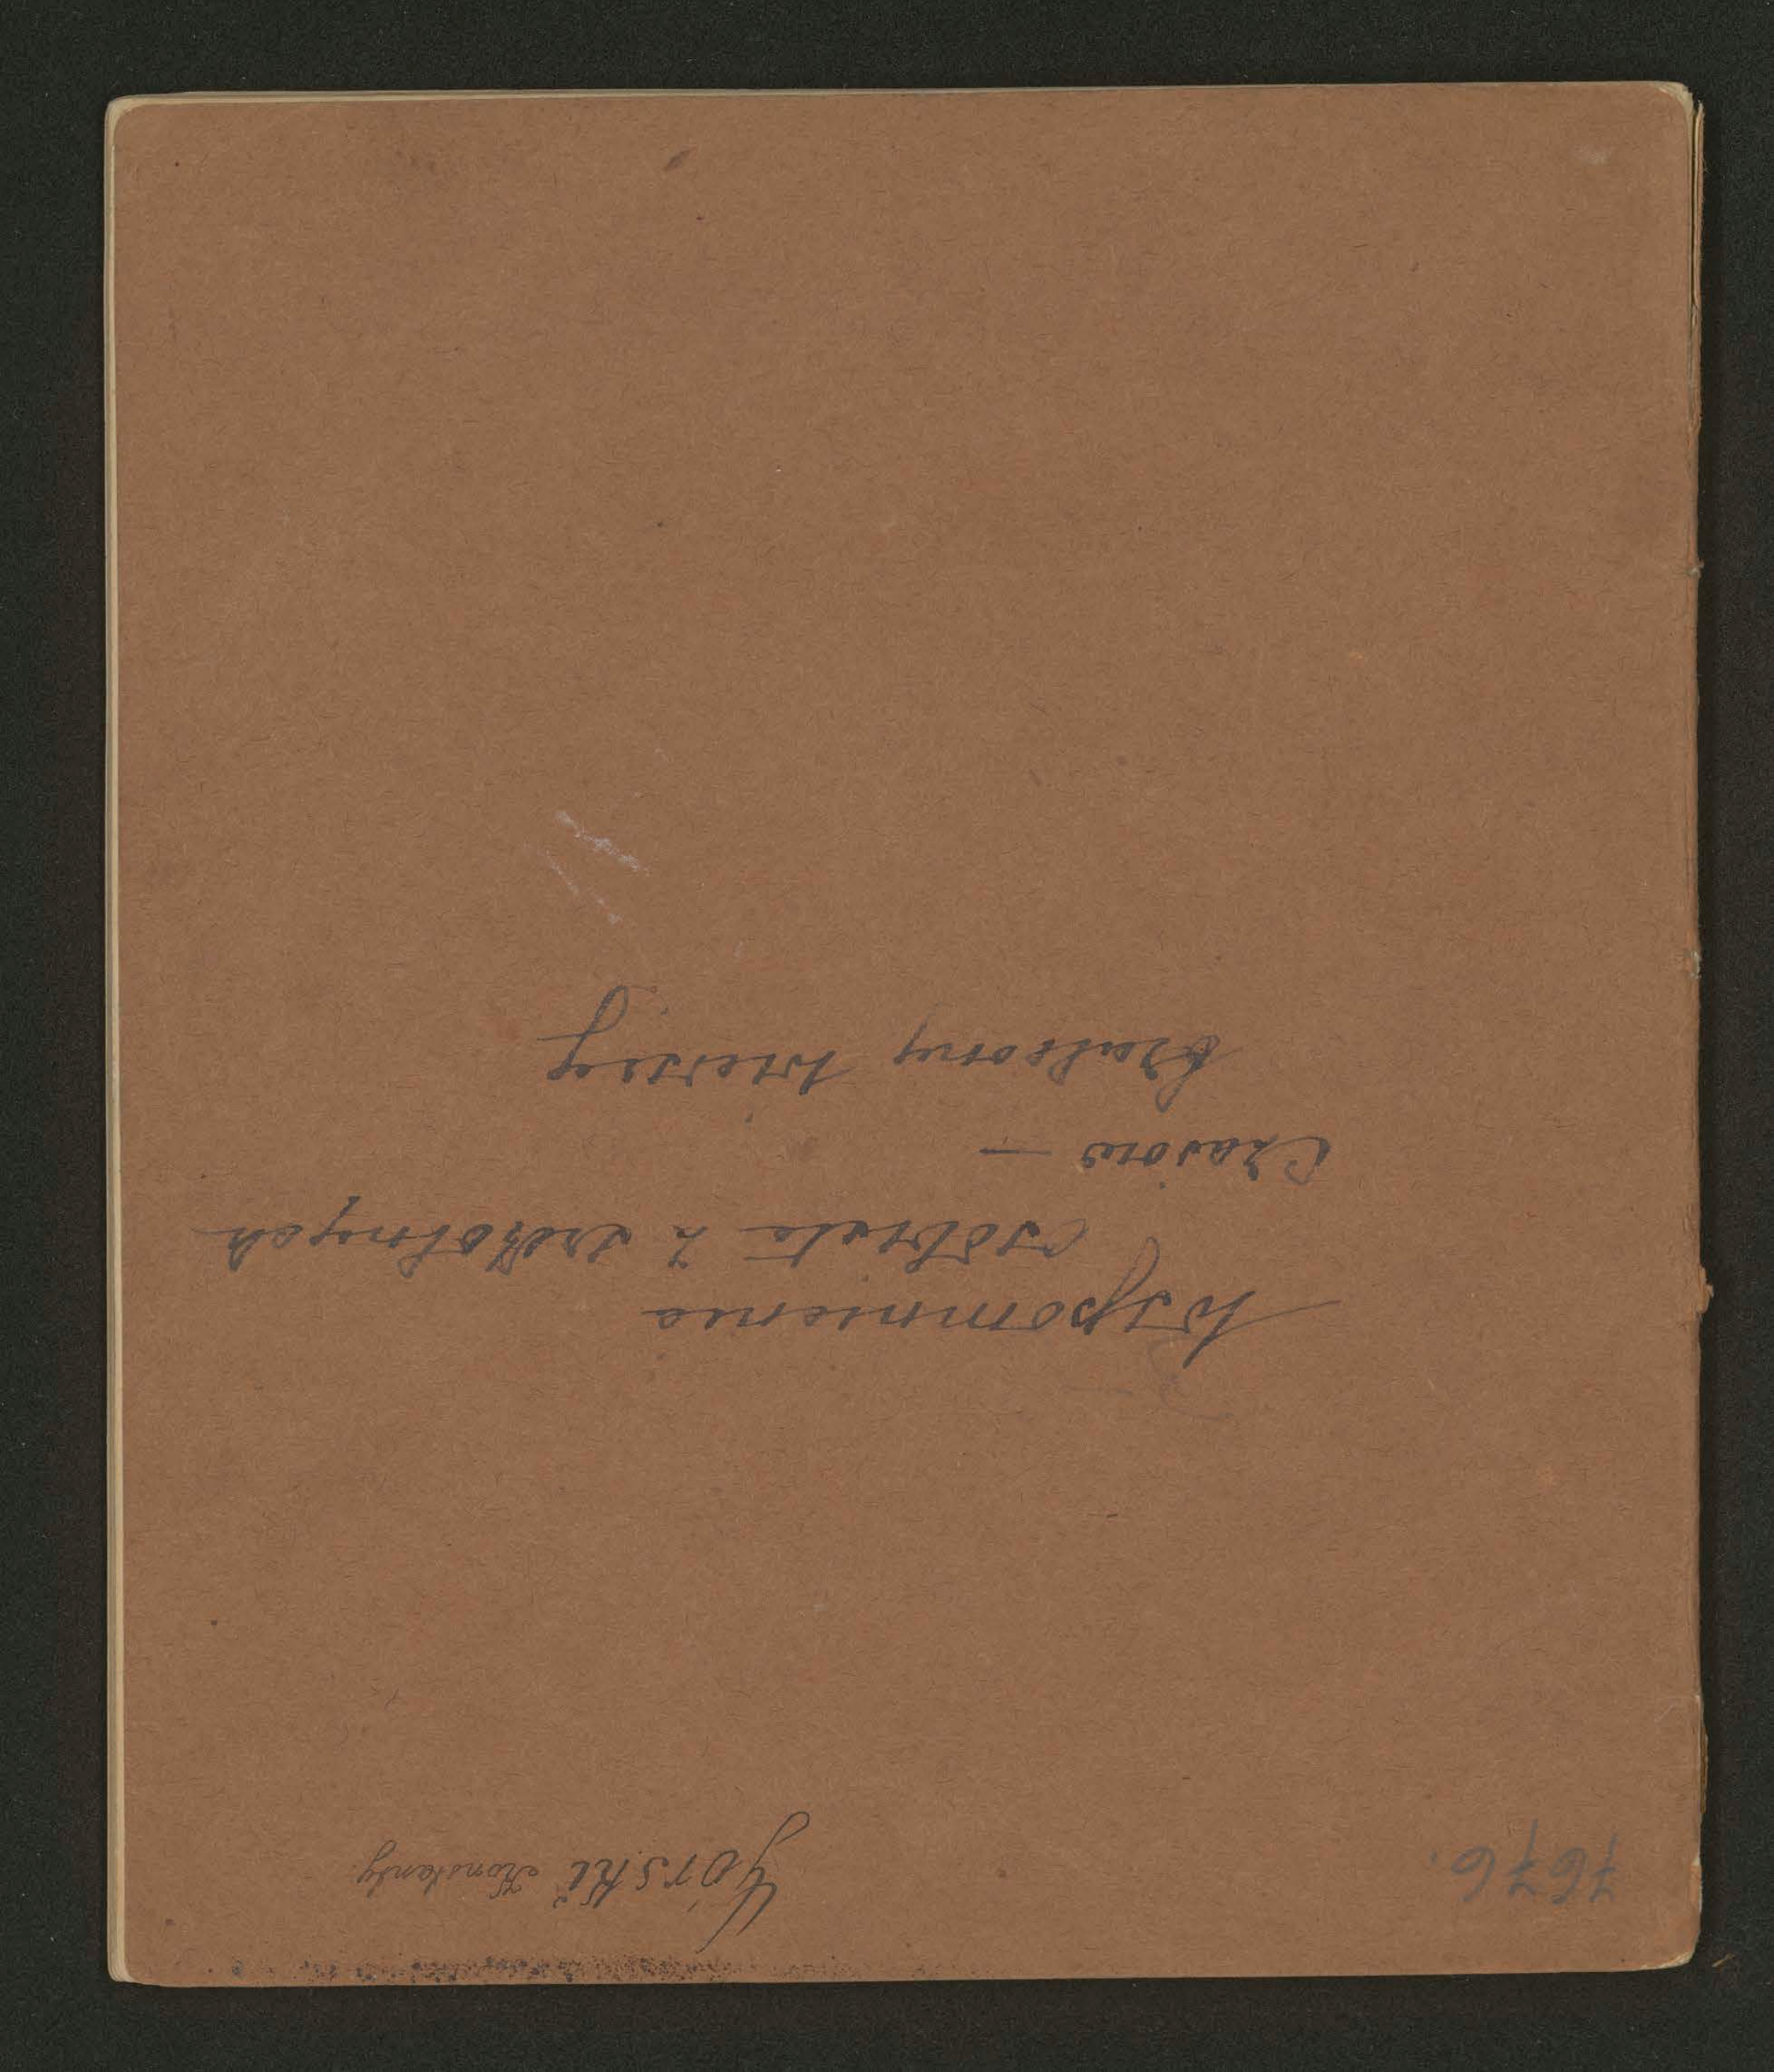 7676.
Górski Konstanty
Wspomnienia
osobiste z szkolnych
Czasów —
wierszy